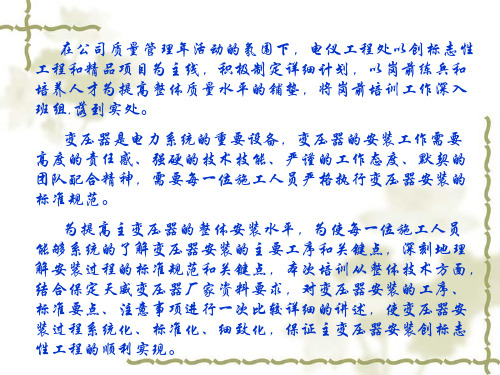 在公司质量管理年活动的氛围下，电仪工程处以创标志性
工程和精品项目为主线，积极制定详细计划，以岗前练兵和
培养人才为提高整体质量水平的铺垫，将岗前培训工作深入
班组.落到实处。
变压器是电力系统的重要设备，变压器的安装工作需要
高度的责任感、强硬的技术技能、严谨的工作态度、默契的
团队配合精神，需要每一位施工人员严格执行变压器安装的
标准规范。
为提高主变压器的整体安装水平，为使每一位施工人员
能够系统的了解变压器安装的主要工序和关键点，深刻地理
解安装过程的标准规范和关键点，本次培训从整体技术方面，
结合保定天威变压器厂家资料要求，对变压器安装的工序、
标准要点、注意事项进行一次比较详细的讲述，使变压器安
装过程系统化、标准化、细致化，保证主变压器安装创标志
性工程的顺利实现。